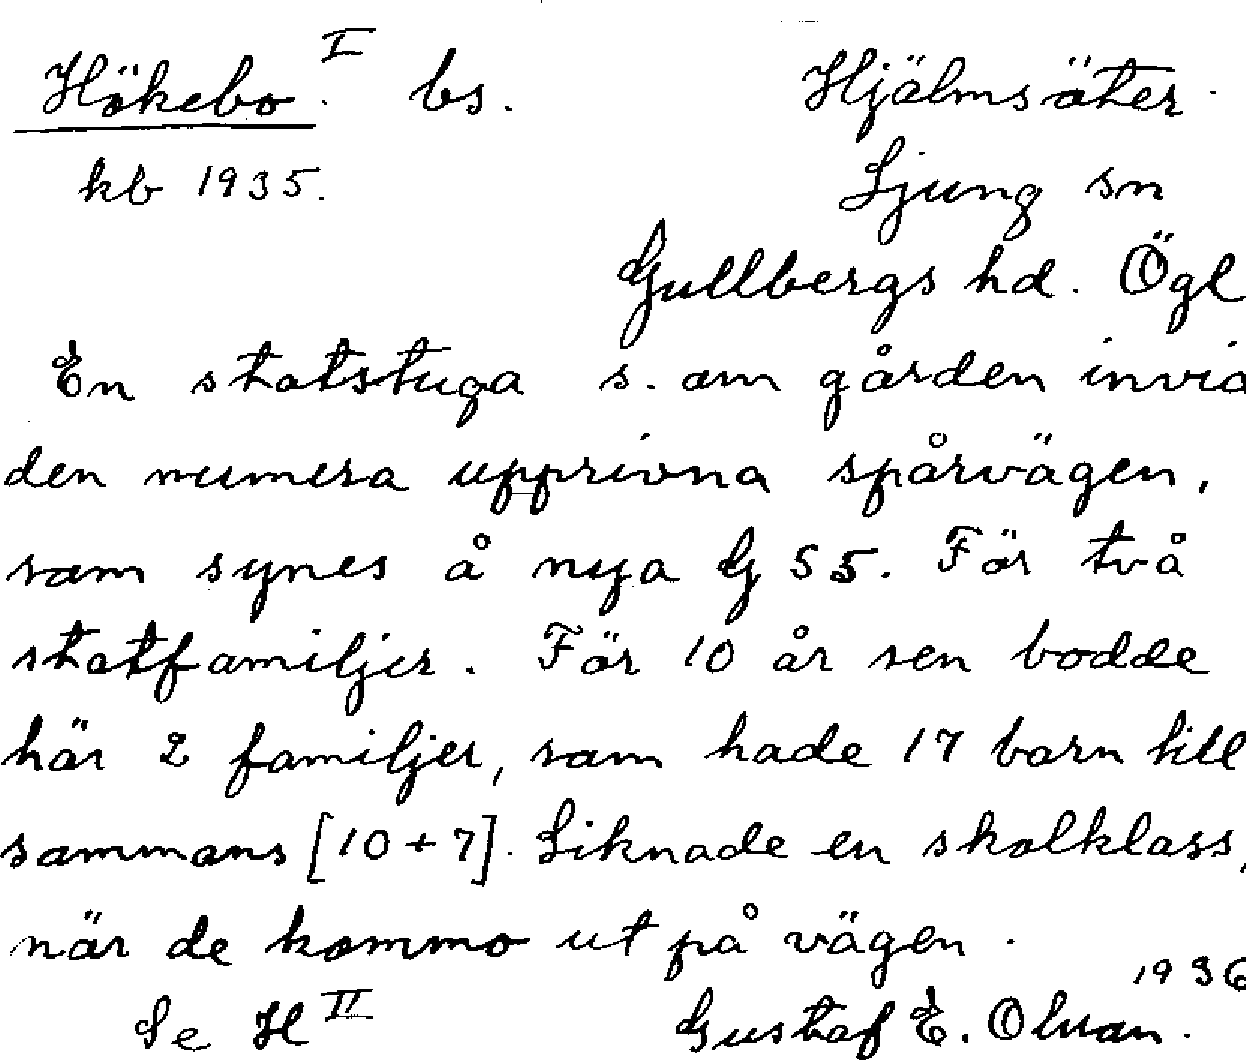 Hökebo. I bs. Hjälmsäter.
kb 1935. Ljung sn
Gullbergs hd. Ögl
En statstuga s. om gården invid
den numera upprivna spårvägen,
som synes å nya G 55. För två
statfamiljer. För 10 år sen bodde
här 2 familjer, som hade 17 barn till
sammans [10+7]. Liknade en skolklass,
när de kommo ut på vägen.
1936
Se H II Gustaf E. Olsson.